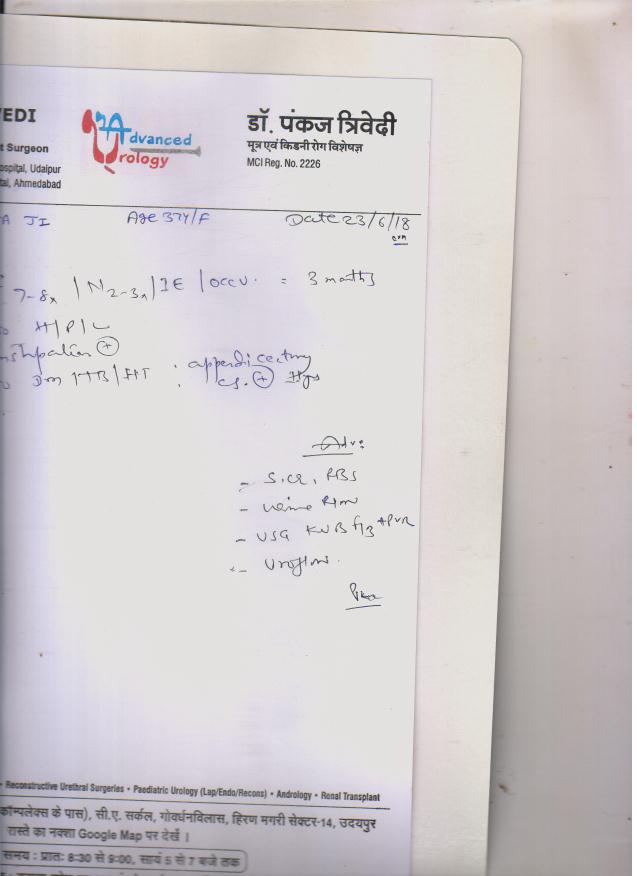 EDI
Advanced
Urology
डॉ. पंकज त्रिवेदी
t Surgeon
मूत्र एवं किडनी रोग विशेषज्ञ
ospital, Udaipur
MCI Reg. No. 2226
tal, Ahmedabad
A JI Age 37Y/F Date 23/6/18
7-8x / N2-3x / IE / occu. = 3 months
H/P/L
nstipation +
Dm HTB/HT : appendicectomy
cs. + Hys
Adv:
- S.CR, RBS
- urine R/m
- USG KUB f/3 +PVR
- Uroflow.
• Reconstructive Urethral Surgeries • Paediatric Urology (Lap/Endo/Recons) • Andrology • Renal Transplant
कॉम्पलेक्स के पास), सी.ए. सर्कल, गोवर्धनविलास, हिरण मगरी सेक्टर-14, उदयपुर
रास्ते का नक्शा Google Map पर देखें ।
समय : प्रातः 8:30 से 9:00, सायं 5 से 7 बजे तक